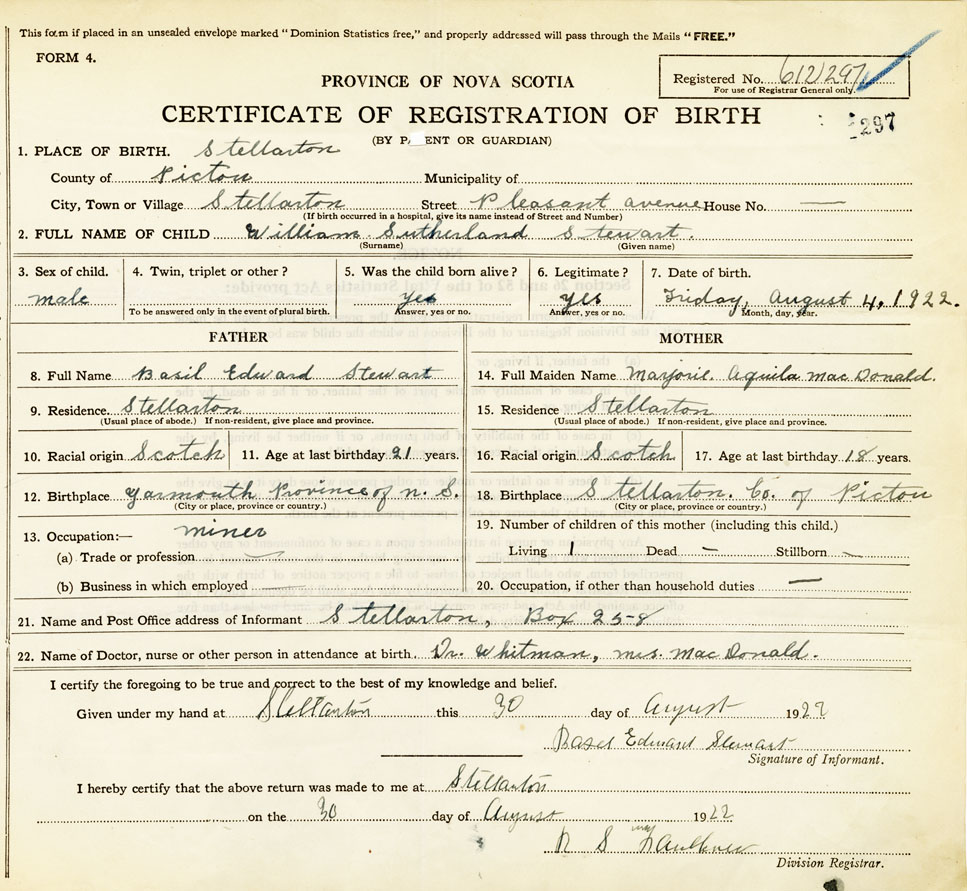 This form if placed in an unsealed envelope marked "Dominion Statistics free," and properly addressed will pass through the Mails "FREE."
FORM 4.
Registered No. 612/297
For use of Registrar General only.
PROVINCE OF NOVA SCOTIA
CERTIFICATE OF REGISTRATION OF BIRTH
297
(BY PA ENT OR GUARDIAN)
1. PLACE OF BIRTH. Stellarton
County of Pictou Municipality of
City, Town or Village Stellarton Street Pleasant avenue House No. —
(If birth occurred in a hospital, give its name instead of Street and Number)
2. FULL NAME OF CHILD William Sutherland Stewart.
(Surname) (Given name)
3. Sex of child. 4. Twin, triplet or other? 5. Was the child born alive? 6. Legitimate? 7. Date of birth.
male yes yes Friday, August 4, 1922.
To be answered only in the event of plural birth. Answer, yes or no. Answer, yes or no. Month, day, year.
FATHER MOTHER
8. Full Name Basil Edward Stewart 14. Full Maiden Name Marjorie. Aquila Mac Donald.
9. Residence. Stellarton 15. Residence Stellarton
(Usual place of abode.) If non-resident, give place and province. (Usual place of abode.) If non-resident, give place and province.
10. Racial origin Scotch 11. Age at last birthday 21 years. 16. Racial origin Scotch 17. Age at last birthday 18 years.
12. Birthplace Yarmouth Province of N. S. 18. Birthplace Stellarton. Co. of Pictou
(City or place, province or country.) (City or place, province or country.)
13. Occupation:— miner 19. Number of children of this mother (including this child.)
(a) Trade or profession — Living 1 Dead — Stillborn —
(b) Business in which employed 20. Occupation, if other than household duties —
21. Name and Post Office address of Informant Stellarton, Box 258
22. Name of Doctor, nurse or other person in attendance at birth. Dr. Whitman, Mrs. Mac Donald.
I certify the foregoing to be true and correct to the best of my knowledge and belief.
Given under my hand at Stellarton this 30 day of August 1922
Basel Edward Stewart
Signature of Informant.
I hereby certify that the above return was made to me at Stellarton
on the 30 day of August 1922
R S Faulkner
Division Registrar.